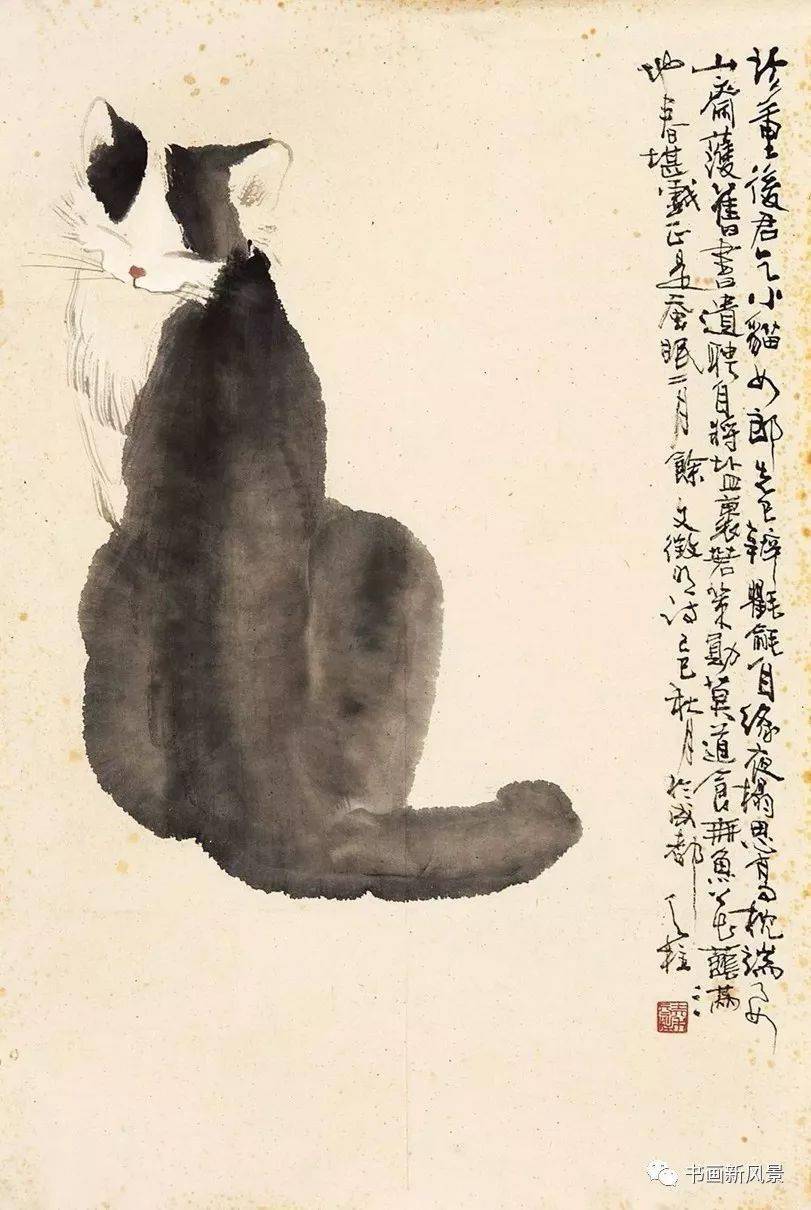 珍重從君乞小貓女郎先已辦氍毹自緣夜榻思高枕端要
山齋護舊書遣聘自將盐裹箬策勳莫道食無魚花蔭滿
地春堪戲正是蚕眠二月餘 文徵明詩 己巳秋月於成都 天柱
书画新风景